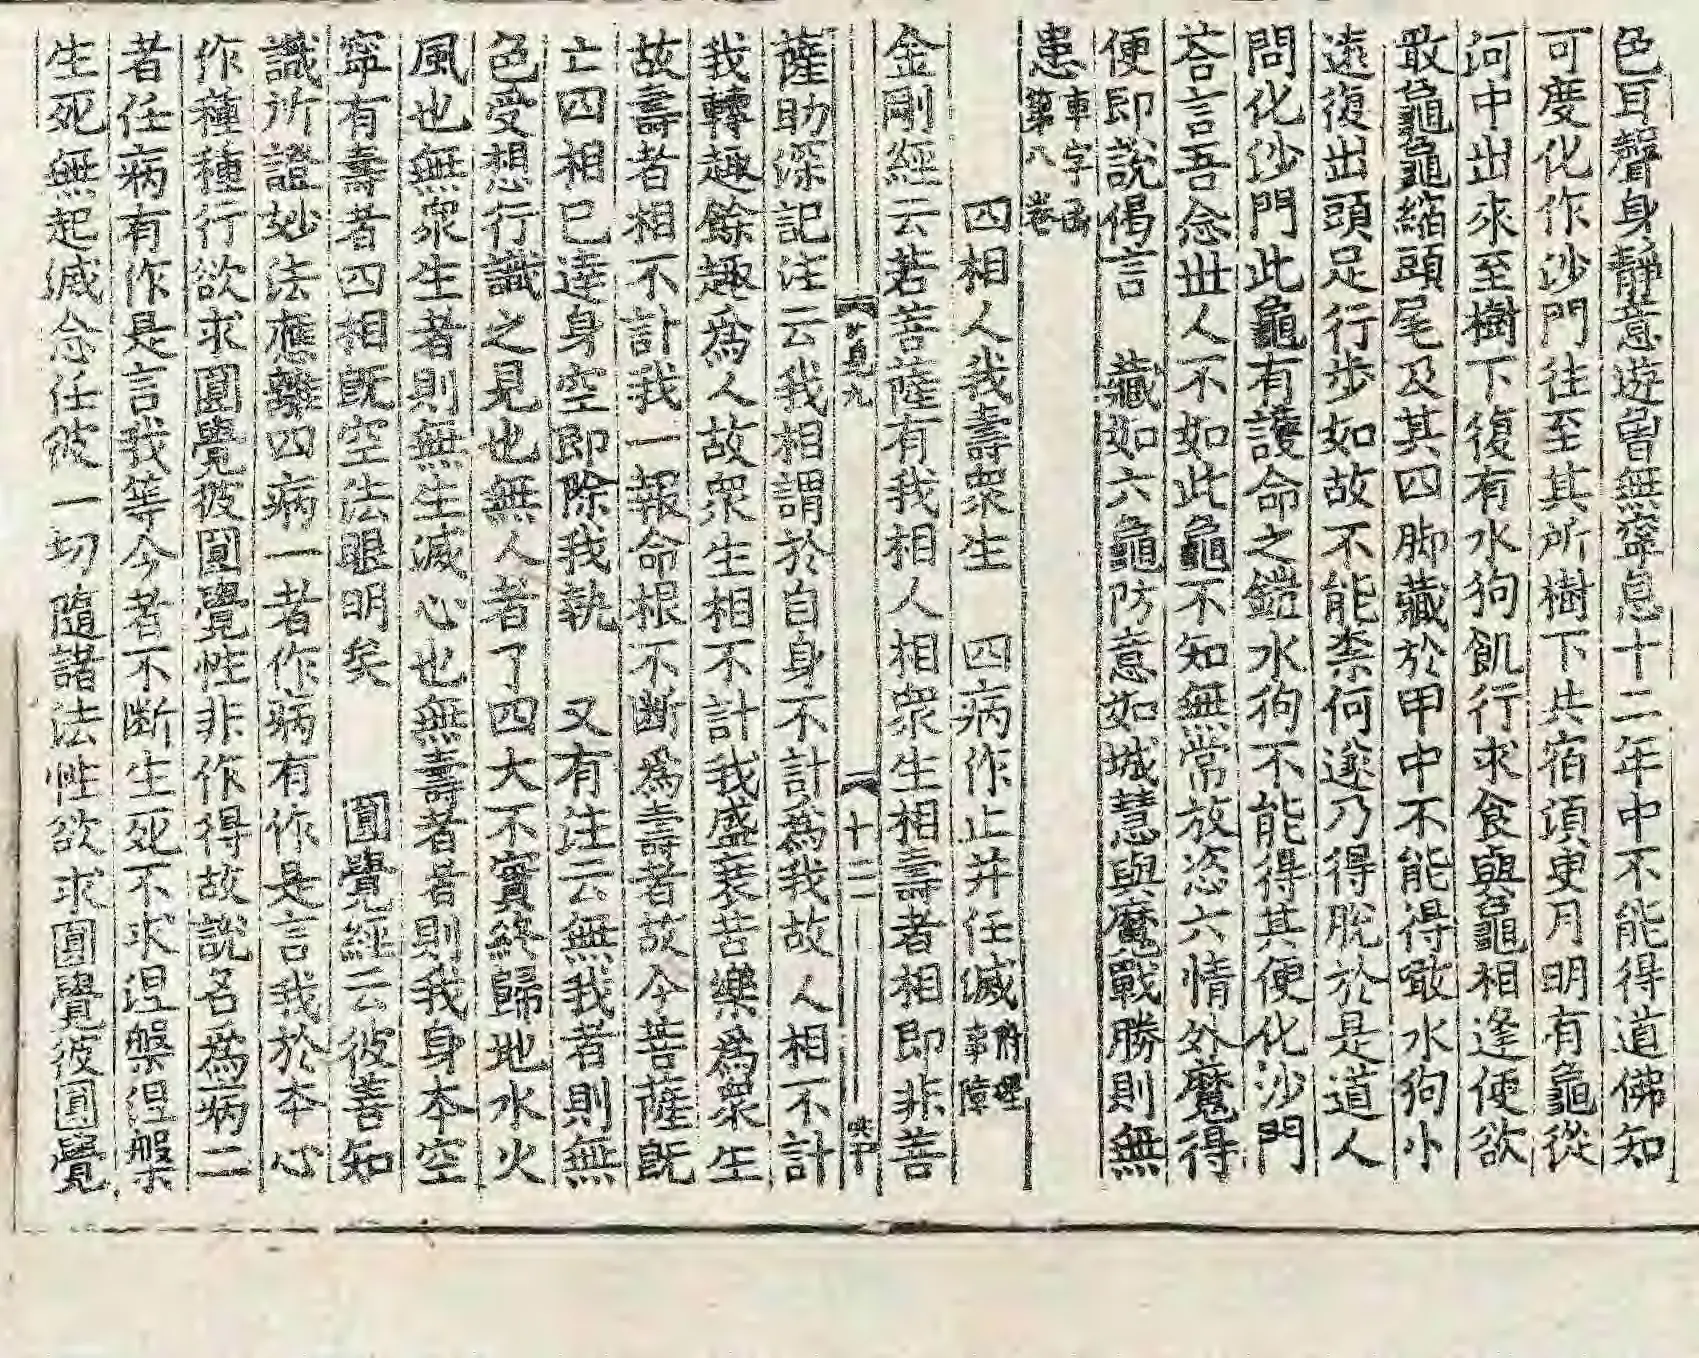 色耳聲身靜意遊曾無寧息十二年中不能得道佛知
可度化作沙門往至其所樹下共宿須臾月明有龜從
河中出來至樹下復有水狗飢行求食與龜相逢便欲
噉龜龜縮頭尾及其四脚藏於甲中不能得噉水狗小
遠復出頭足行步如故不能柰何遂乃得脫於是道人
問化沙門此龜有護命之鎧水狗不能得其便化沙門
荅言吾念世人不如此龜不知無常放恣六情外魔得
便即說偈言　藏如六龜防意如城慧與魔戰勝則無
患車字函第八卷
四相人我壽衆生　四病作止并任滅
金剛經云若菩薩有我相人相衆生相壽者相即非菩
十二
薩助深記注云我相謂於自身不計爲我故人相不計
我轉趣餘趣爲人故衆生相不計我盛衰苦樂爲衆生
故壽者相不計我一報命根不斷爲壽者故今菩薩既
亡四相已達身空即除我執　又有注云無我者則無
色受想行識之見也無人者了四大不實終歸地水火
風也無衆生者則無生滅心也無壽者者則我身本空
寧有壽者四相既空法眼明矣　圓覺經云彼善知
識所證妙法應離四病一者作病有作是言我於本心
作種種行欲求圓覺彼圓覺性非作得故說名爲病二
者任病有作是言我等今者不斷生死不求涅槃涅槃
生死無起滅念任彼一切隨諸法性欲求圓覺彼圓覺